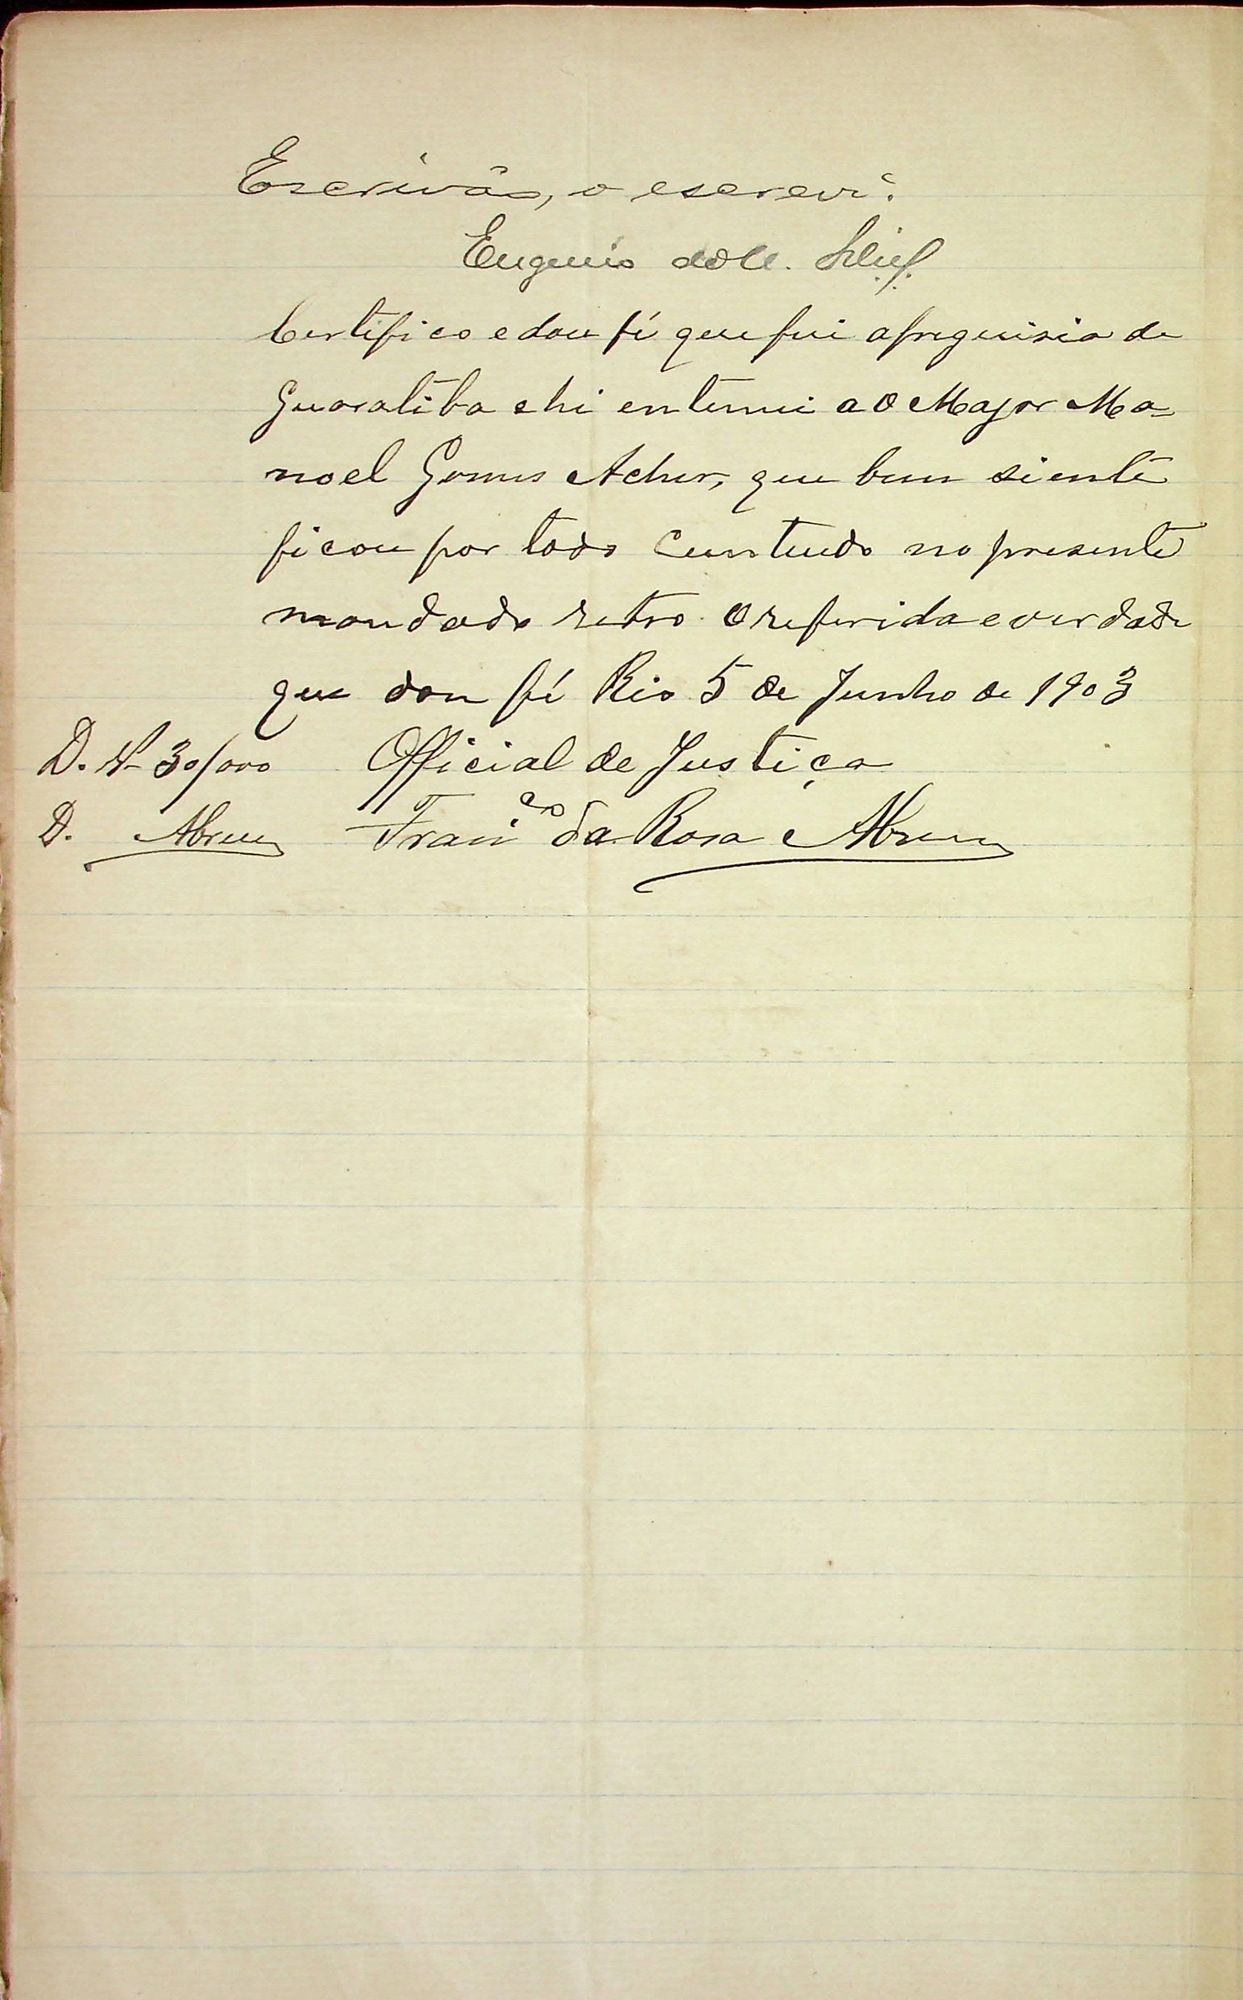 Escrivão, o escrevi.
Eugenio
Certifico e dou fé que fui a freguisia de
Guaratiba e hi entimei a o Major Ma-
noel Gomes Acher, que bem siente
ficou por todo Cunteudo no presente
mandado retro O referida e verdade
que dou fé Rio 5 de Junho de 1903
D. N 30/000 Official de Justiça
D. Abreu Franco da Rosa Abreu